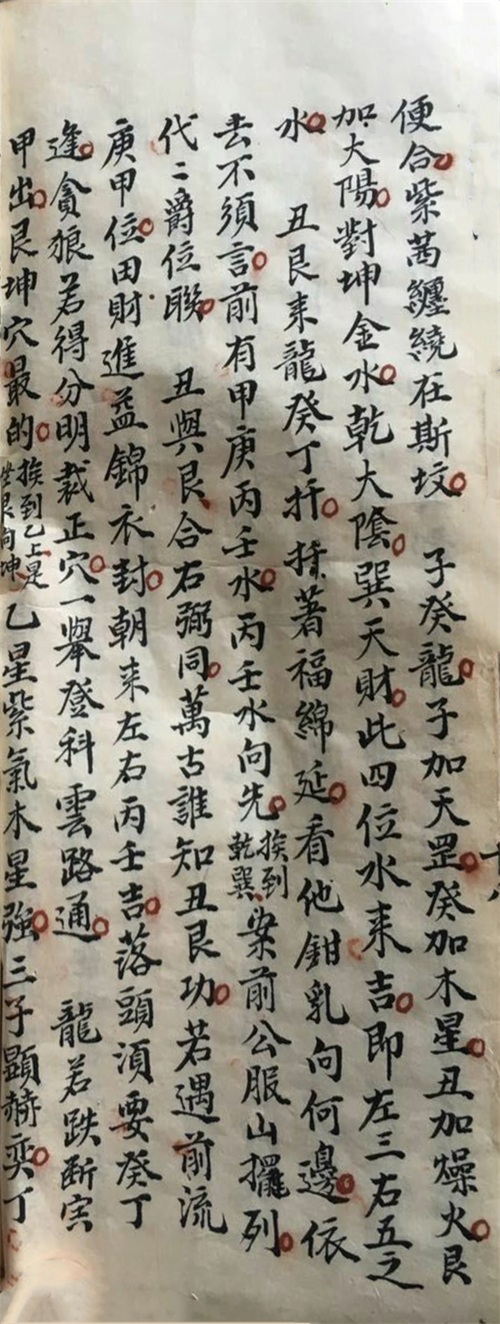 便合紫茜纏繞在斯坟　子癸龍子加天罡癸加木星丑加燥火艮
加大陽對坤金水乾大陰巽天財此四位水来吉即左三右五之
水　丑艮来龍癸丁扦扦著福綿延看他鉗乳向何邊依
去不須言前有甲庚丙壬水丙壬水向先挨到乾巽案前公服山擺列
代二爵位聯　丑與艮合右弼同萬古誰知丑艮功若遇前流
庚甲位田財進益錦衣封朝来左右丙壬吉落頭須要癸丁
逢貪狼若得分明裁正穴一舉登科雲路通　龍若跌断寅
甲出艮坤穴最的挨到乙上是坐艮向坤乙星紫氣木星強三子顯赫奕丁
十八